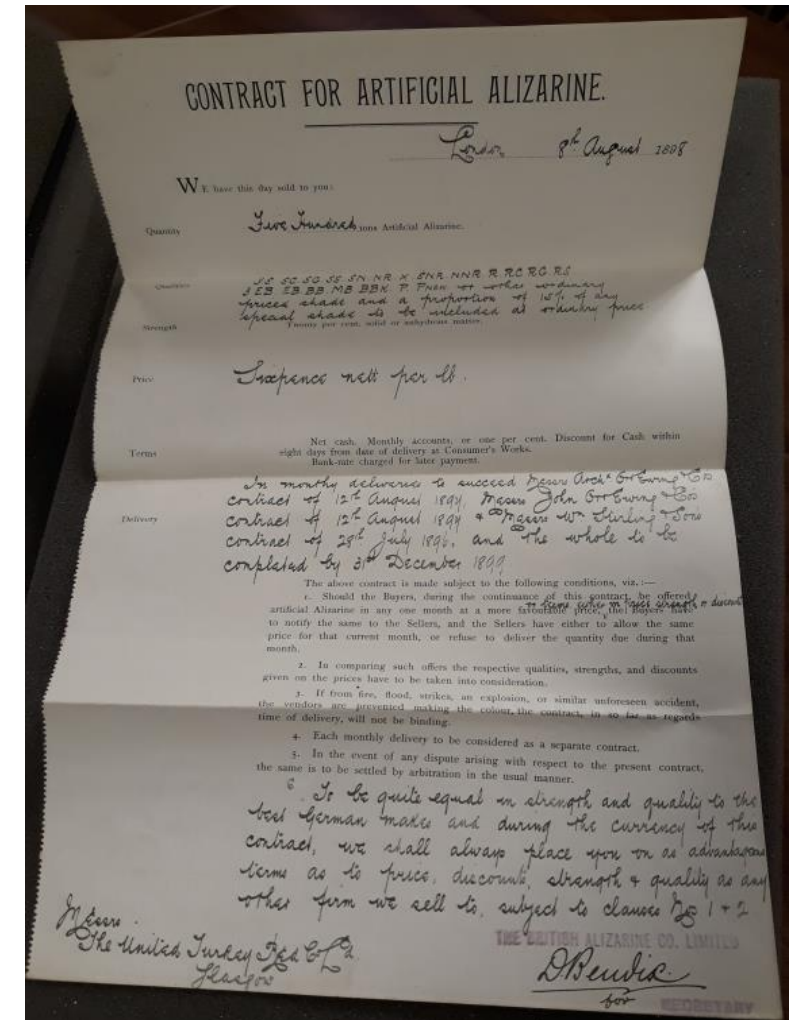 CONTRACT FOR ARTIFICIAL ALIZARINE.
London, 8th August 1898
WE have this day sold to you:
Quantity Five Hundred tons Artificial Alizarine.
Qualities SS SC SG SS SN NR X SNR NNR R RC RG RS
EB BB MB BBX P or other ordinary
priced shade and a proportion of 15% of any
special shade to be included at ordinary price.
Strength Twenty per cent. solid or anhydrous matter.
Price Sixpence nett per lb.
Net cash. Monthly accounts, or one per cent. Discount for Cash within
Terms eight days from date of delivery at Consumer's Works.
Bank-rate charged for later payment.
In monthly deliveries to succeed Messrs Archd Orr Ewing & Cos
contract of 12th August 1894, Messrs John Orr Ewing & Cos
Delivery contract of 12th August 1894 & Messrs Wm Stirling & Sons
contract of 28th July 1896, and the whole to be
completed by 31st December 1899
The above contract is made subject to the following conditions, viz.:—
1. Should the Buyers, during the continuance of this contract, be offered
or terms either in price strength or discount
artificial Alizarine in any one month at a more favourable price, the Buyers have
to notify the same to the Sellers, and the Sellers have either to allow the same
price for that current month, or refuse to deliver the quantity due during that
month.
2. In comparing such offers the respective qualities, strengths, and discounts
given on the prices have to be taken into consideration.
3. If from fire, flood, strikes, an explosion, or similar unforeseen accident,
the vendors are prevented making the colour, the contract, in so far as regards
time of delivery, will not be binding.
4. Each monthly delivery to be considered as a separate contract.
5. In the event of any dispute arising with respect to the present contract,
the same is to be settled by arbitration in the usual manner.
6. To be quite equal in strength and quality to the
best German makes and during the currency of this
contract, we shall always place you on as advantageous
terms as to price, discounts, strength & quality as any
other firm we sell to, subject to clauses Nos 1 & 2
Messrs.
The United Turkey Red Co Ld.
Glasgow
THE BRITISH ALIZARINE CO. LIMITED
D. Bendix
for SECRETARY